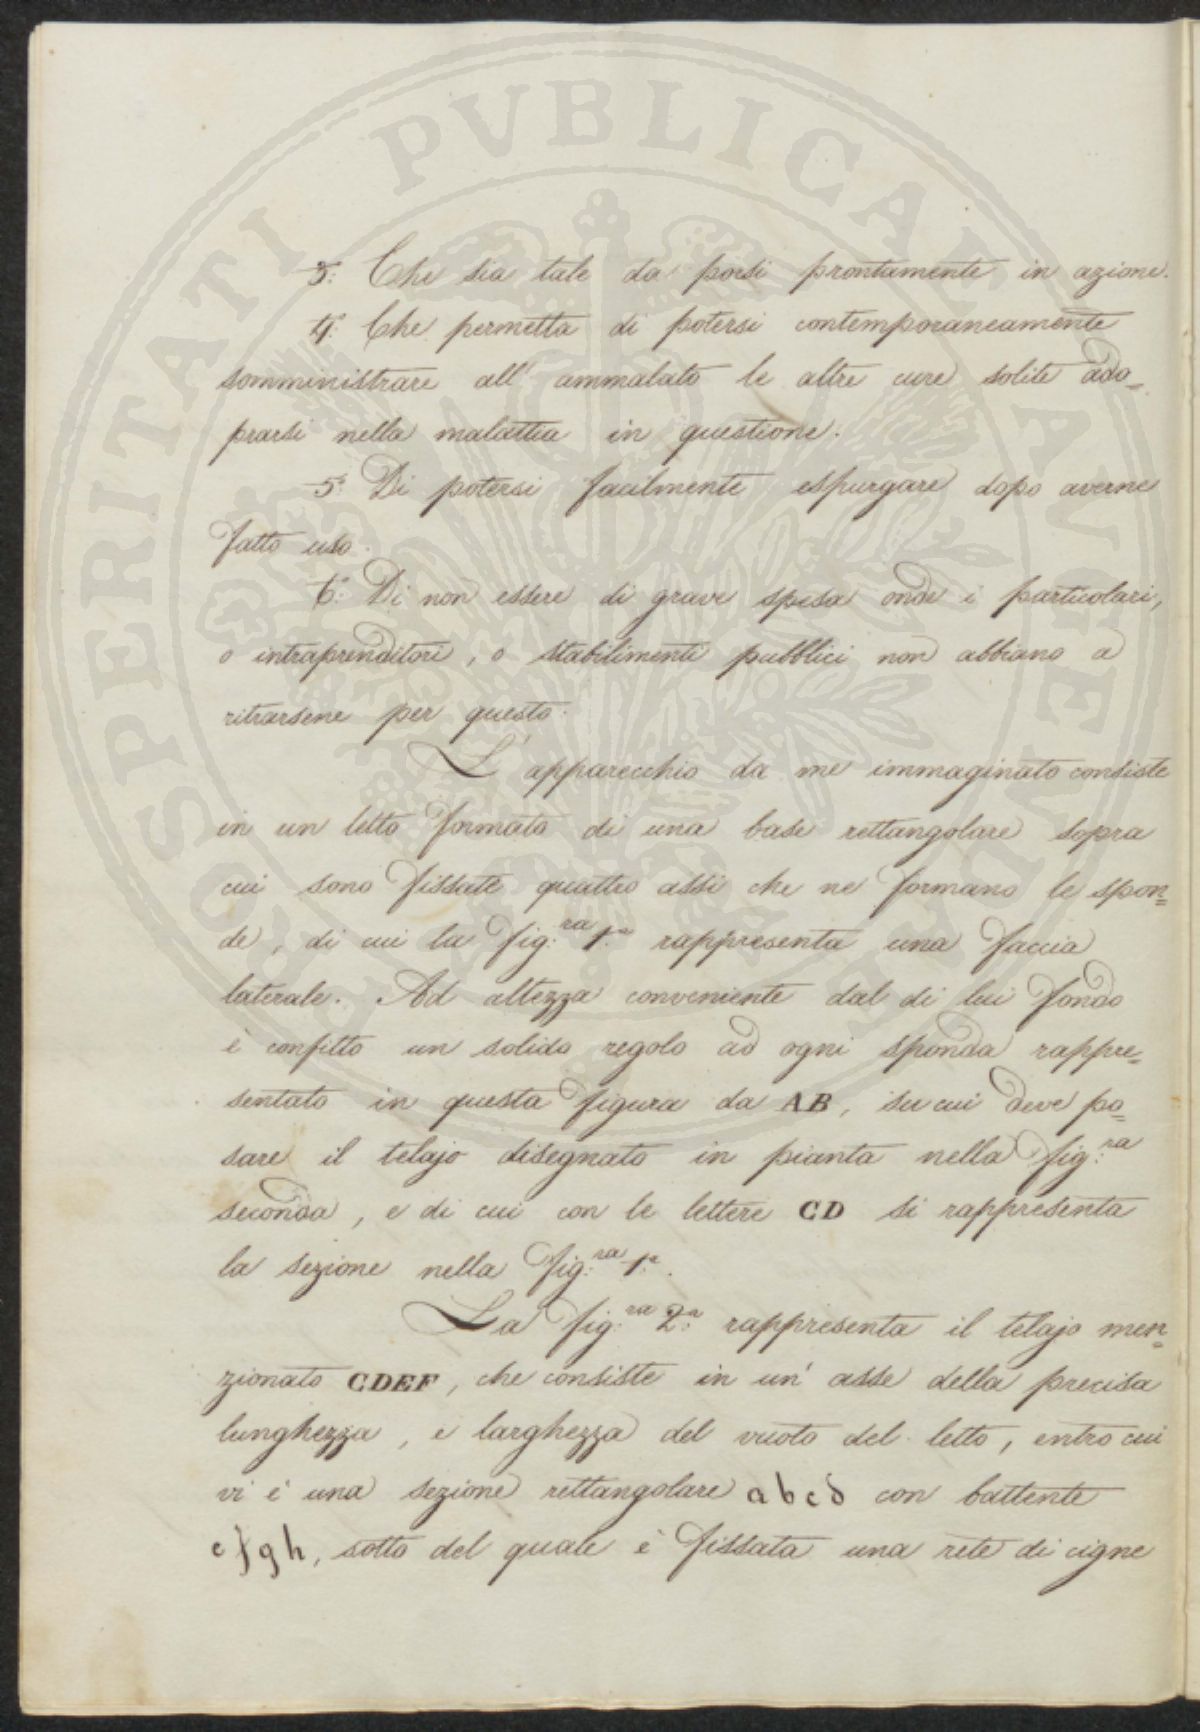 3.° Che sia tale da porsi prontamente in azione.
4.° Che permetta di potersi contemporaneamente
somministrare all' ammalato le altre cure solite ado=
prarsi nella malattia in questione.
5.° Di potersi facilmente espurgare dopo averne
fatto uso.
6.° Di non essere di grave spesa onde i particolari,
o intraprenditori, o stabilimenti pubblici non abbiano a
ritrarsene per questo.
L' apparecchio da me immaginato consiste
in un letto formato di una base rettangolare sopra
cui sono fissate quattro assi che ne formano le spon=
de, di cui la fig.ra 1.a rappresenta una faccia
laterale. Ad altezza conveniente dal di lui fondo
è confitto un solido regolo ad ogni sponda rappre=
sentato in questa figura da AB, su cui deve po=
sare il telajo disegnato in pianta nella fig.ra
seconda, e di cui con le lettere CD si rappresenta
la sezione nella fig.ra 1.a.
La fig.ra 2.a rappresenta il telajo men=
zionato CDEF, che consiste in un' asse della precisa
lunghezza, e larghezza del vuoto del letto, entro cui
vi è una sezione rettangolare abcd con battente
efgh, sotto del quale è fissata una rete di cigne
PROSPERITATI PVBLICAE AVGENDAE